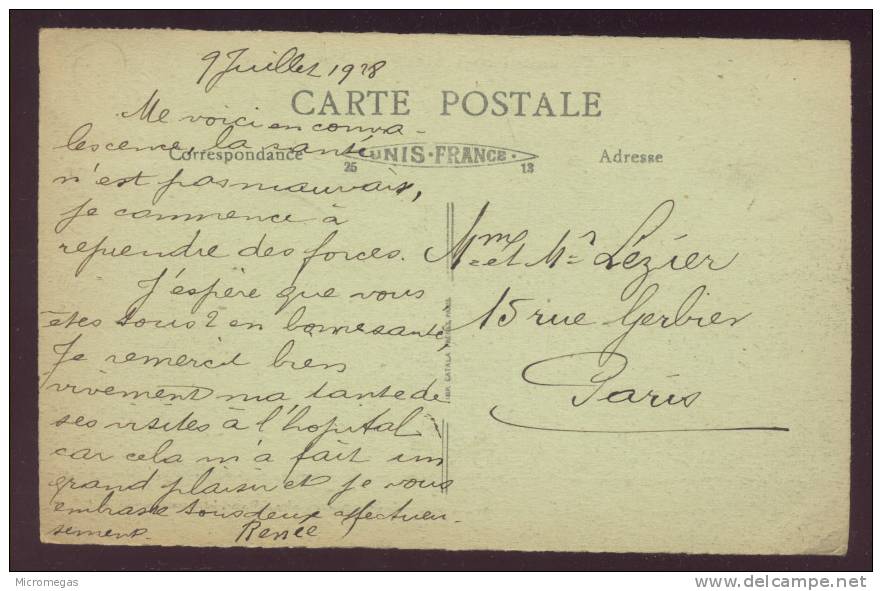 9 Juillet 1928
CARTE POSTALE
Me voici en conva-
lescence, la santé
Correspondance
UNIS-FRANCE
25
13
Adresse
n'est pas mauvais,
je commence à
reprendre des forces.
J'espère que vous
êtes tous 2 en bonne santé,
Je remercie bien
vivement ma tante de
ses visites à l'hopital
car cela m'a fait un
grand plaisir et je vous
embrasse tous deux affectueu-
sement. Renée
Mme et Mr Lézier
15 rue Gerbier
Paris
IMP. CATALA FRERES, PARIS
Micromegas
www.delcampe.net